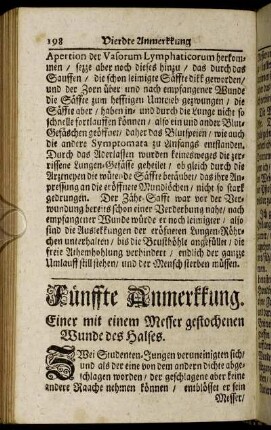 198 Vierdte Anmerkkung
Apertion der Vasorum Lymphaticorum herkom-
men / setze aber noch dieses hinzu / das durch das
Sauffen / die schon leimigte Säffte dikk geworden /
und der Zorn über und nach empfangener Wunde
die Säffte zum hefftigen Umtrieb gezwungen / die
Säffte aber / haben in- und durch die Lunge nicht so
schnelle fortlauffen können / als ein und ander Blut-
Gefäschen geöffnet / daher das Blutspeien / wie auch
die andere Symptomata zu Anfangs entstanden.
Durch das Aderlassen wurden keinesweges die zer-
rissene Lungen-Gefäße geheilet / ob gleich durch die
Artzneyen die Säffte beräubet / das ihre An-
pressung an die eröffnete Mundlöchen / nicht so stark
gedrungen. Der Zähe-Safft war vor der Ver-
wundung bereits schon einer Verderbung nahe / nach
empfangener Wunde würde er noch leimiger / also
sind die Ausleckungen der eröffneten Lungen-Röhr-
chen unterhalten / bis die Brusthöhle angefüllet / die
freie Athemhohlung verhindert / endlich der gantze
Umlauff still stehen / und der Mensch sterben müssen.
Fünffte Anmerkkung.
Einer mit einem Messer gestochenen
Wunde des Halses.
ZWei Studenten-Jungen veruneinigten sich /
und als der eine von dem andern dichte abge-
schlagen worden / der geschlagene aber keine
andere Raache nehmen können / entblösset er sein
Messer /